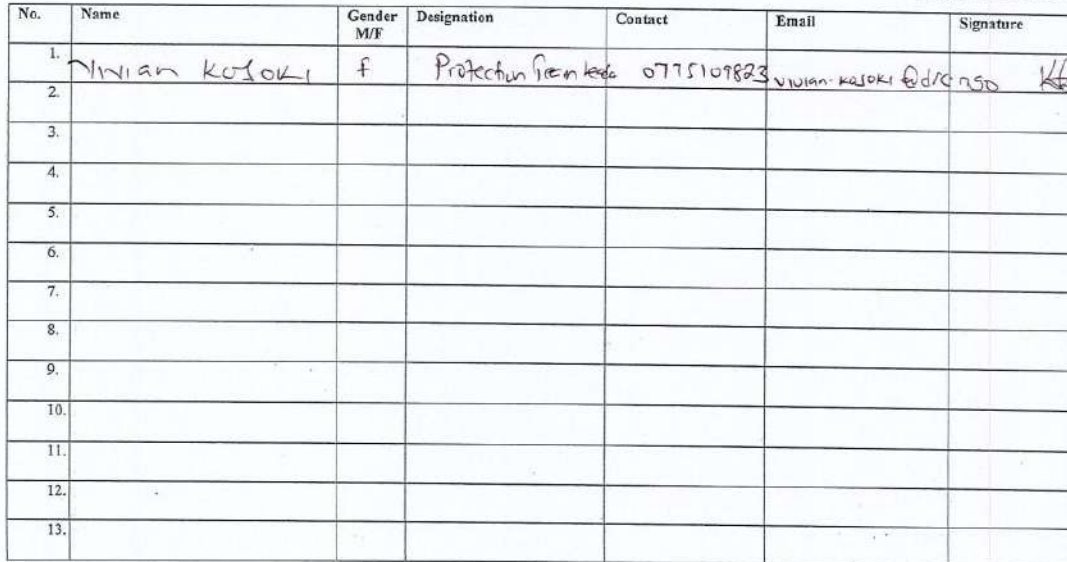 No. Name Gender M/F Designation Contact Email Signature
1. Vivian Kasoki f Protection Team leader 0775109823 vivian.kasoki@drc.ngo
2.
3.
4.
5.
6.
7.
8.
9.
10.
11.
12.
13.